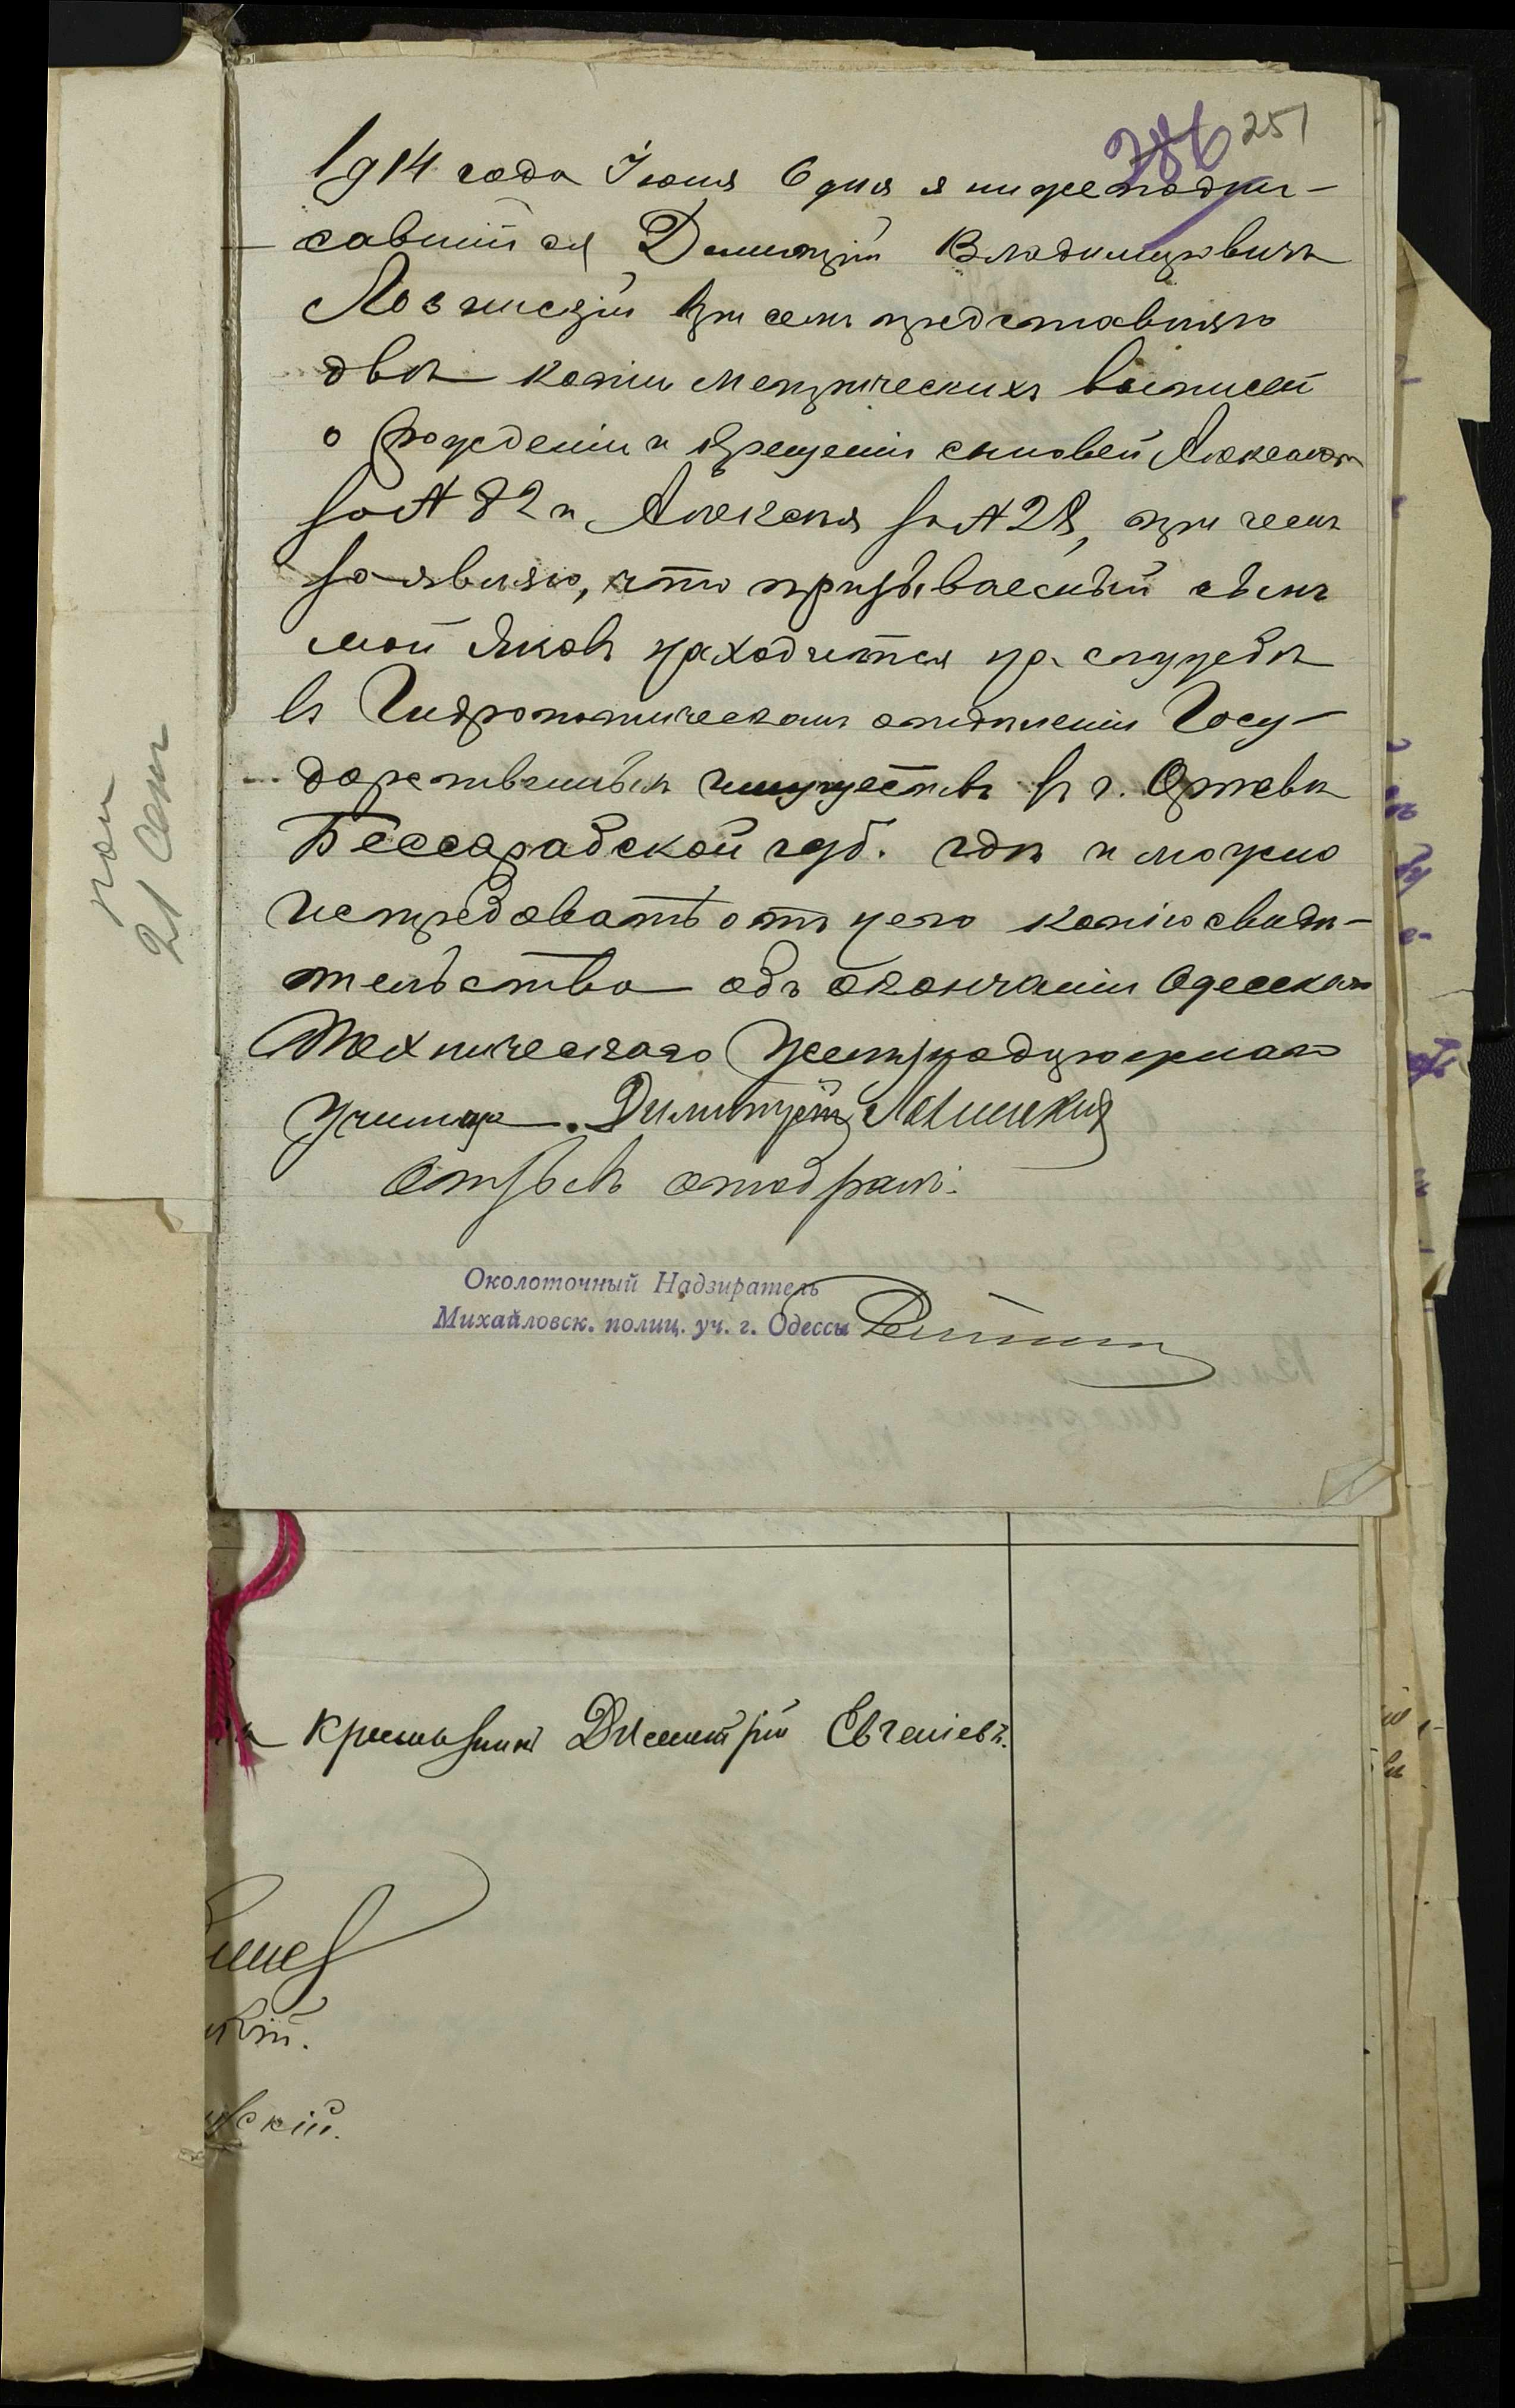 286 251
1914 года Іюня 6 дня я нижеподпи-
савшійся Димитрій Владимировичъ
Лозинскій при семъ представляю
двѣ копіи метрическихъ выписей
о рожденіи и крещеніи сыновей Александра
за № 82 и Алексѣя за № 28, при чемъ
заявляю, что призываемый сынъ
мой Яковъ находится на службѣ
въ Гидротехническомъ отдѣленіи Госу-
дарственныхъ имуществъ въ г. Оргѣевѣ
Бессарабской губ. гдѣ и можно
истребовать отъ него копію свидѣ-
тельства объ окончаніи Одесскаго
Техническаго Желѣзнодорожнаго
Училища. Димитрій Лозинскій
Отзывъ отобралъ.
Околоточный Надзиратель
Михайловск. полиц. уч. г. Одессы
21 Сент
Димитрій Евгеніевъ.
кій.
вскій.